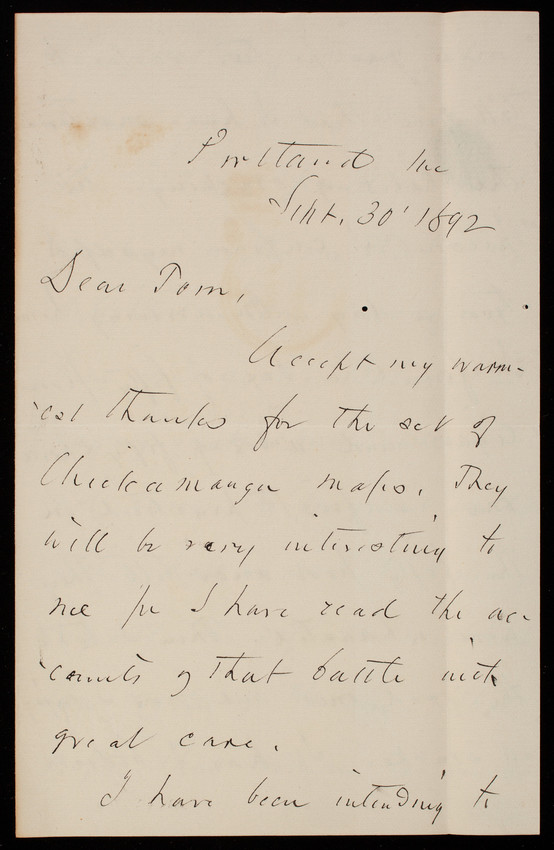 Portland Me
Sept. 30' 1892
Dear Tom,
Accept my warm-
est thanks for the set of
Chickamauga maps. They
will be very interesting to
me for I have read the ac-
counts of that battle with
great care.
I have been intending to